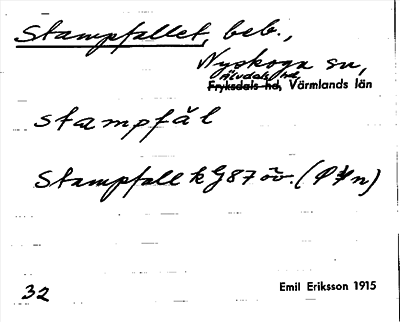 Stampfallet, beb.,
Nyskoga sn,
Älvdals hd,
Fryksdals hd, Värmlands län
stampfăl
Stampfall k G87 öv. (
32
Emil Eriksson 1915